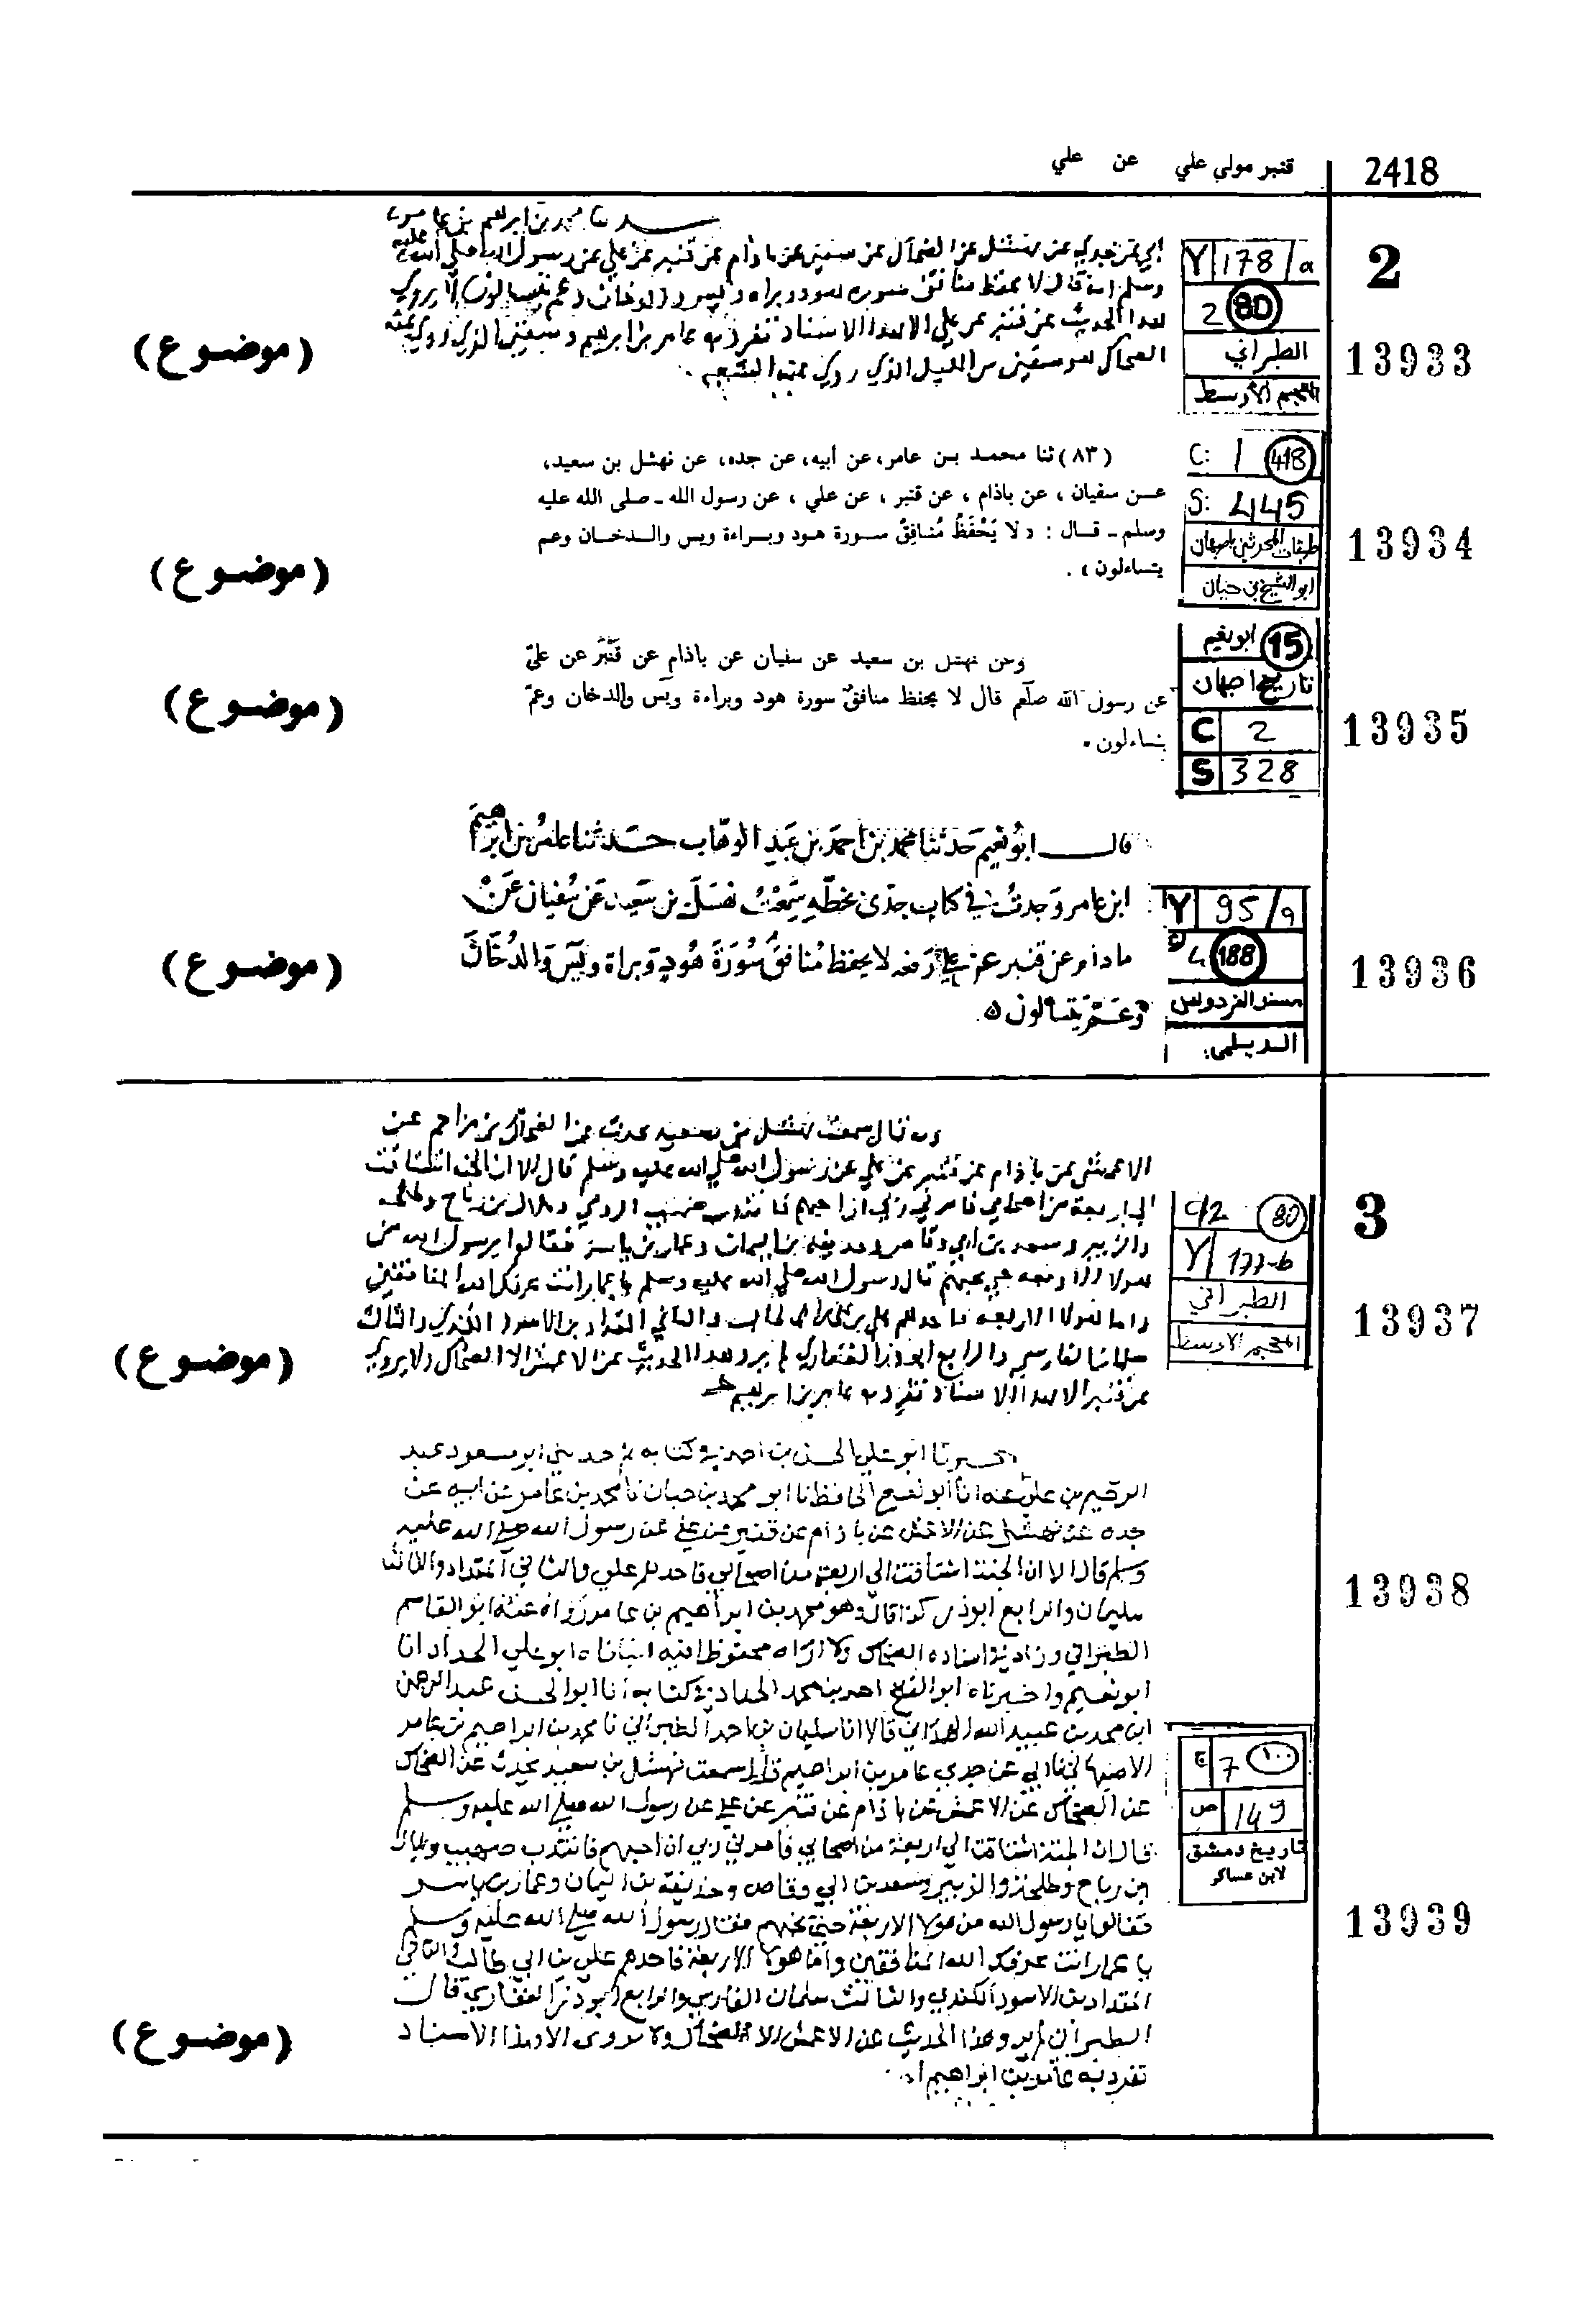 2418
قنبر مولى علي عن علي
2
Y 178/a
2 80
الطبراني
المعجم الأوسط
13933
حدثنا محمد بن ابراهيم بن عامر حدثني
ابي عن جدي عن نهشل عن الضحاك عن سفين عن باذام عن قنبر عن علي عن رسول الله صلى الله عليه
وسلم انه قال لا يحفظ منافق سوره هود وبراه ويس والدخان وعم يتسالون لا يروي
هذا الحديث عن قنبر عن علي الا بهذا الاسناد تفرد به عامر بن ابراهيم وسفين الذي روي عنه
الضحاك هو سفين بن الليل الذي روي عنه الشعبي .
(موضوع)
C: 1 418
S: 445
طبقات المحدثين بأصبهان
ابو الشيخ بن حيان
13934
(٨٣) ثنا محمد بن عامر، عن أبيه، عن جده، عن نهشل بن سعيد،
عن سفيان ، عن باذام ، عن قنبر ، عن علي ، عن رسول الله ـ صلى الله عليه
وسلم ـ قال : « لا يَحْفَظُ مُنافِقٌ سورة هود وبراءة ويس والدخان وعم
يتساءلون » .
(موضوع)
15 ابو نعيم
تاريخ اصبهان
C 2
S 328
13935
وعن نهشل بن سعيد عن سفيان عن باذام عن قَنْبَر عن علىّ
عن رسول الله صلّعم قال لا يحفظ منافقٌ سورة هود وبراءة ويٓس والدخان وعمّ
يتساءلون .
(موضوع)
Y 95/a
4 188
مسند الفردوس
الديلمي
13936
قال ابو نعيم حدثنا محمد بن احمد بن عبد الوهاب حدثنا عامر بن ابراهيم
ابن عامر وجدت في كتاب جدى بخطه سمعت نهشل بن سعيد عن سفيان عن
باذام عن قنبر عن علي رفعه لا يحفظ منافق سورة هود وبراة ويس والدخان
وعم يتسالون
(موضوع)
3
C/2 80
Y 177-b
الطبراني
المعجم الاوسط
13937
وبه قال سمعت نهشل بن سعيد يحدث عن الضحاك بن مزاحم عن
الاعمش عن باذام عن قنبر عن علي عن رسول الله صلي الله عليه وسلم قال الا ان الجنه اشتاقت
الي اربعة من اصحابي فامرني ربي ان احبهم فانتدب صهيب الرومي وبلال بن رباح وطلحه
والزبير وسعد بن ابي وقاص وحذيفه بن اليمان وعمار بن ياسر فقالوا يرسول الله من
هولاء الاربعه حتي نحبهم قال رسول الله صلي الله عليه وسلم يا عمار انت عرفك الله المنافقين
واما هولاء الاربعه فاحدهم علي بن ابي طالب والثاني المقداد بن الاسود الكندي والثالث
سلمان الفارسي والرابع ابو ذر الغفاري لم يرو هذا الحديث عن الاعمش الا الضحاك ولا يروي
عن قنبر الا بهذا الاسناد تفرد به عامر بن ابرهيم
(موضوع)
اخبرنا ابو علي الحسن بن احمد في كتابه ثم حدثني ابو مسعود عبد
الرحيم بن علي عنه انا ابو نعيم الحافظ نا ابو محمد بن حيان نا محمد بن عامر عن ابيه عن
جده عن نهشل عن الاعمش عن باذام عن قنبر عن علي عن رسول الله صلى الله عليه
وسلم قال الا ان الجنة اشتاقت الى اربعة من اصحابي فاحدهم علي والثاني المقداد والثالث
سلمان والرابع ابو ذر كذا قال وهو محمد بن ابراهيم بن عامر رواه عنه ابو القاسم
الطبراني وزاد في اسناده الضحاك ولا اراه محفوظا فيه انبانا ه ابو علي الحداد انا
ابو نعيم واخبرناه ابو الفتح احمد بن محمد الحداد في كتابه انا ابو الحسن عبد الرحمن
ابن محمد بن عبيد الله الهمذاني قالا انا سليمان بن احمد الطبراني نا محمد بن ابراهيم بن عامر
الاصبهاني نا ابي عن جدي عامر بن ابراهيم قال سمعت نهشل بن سعيد يحدث عن الضحاك
عن الضحاك عن الاعمش عن باذام عن قنبر عن علي عن رسول الله صلى الله عليه وسلم
قال ان الجنة اشتاقت الى اربعة من اصحابي فامرني ربي ان احبهم فانتدب صهيب وبلال
ابن رباح وطلحة والزبير وسعد بن ابي وقاص وحذيفة بن اليمان وعمار بن ياسر
فقالوا يا رسول الله من هولا الاربعة حتى نحبهم فقال رسول الله صلى الله عليه وسلم
يا عمار انت عرفك الله المنافقين واما هولا الاربعة فاحدهم علي بن ابي طالب والثاني
المقداد بن الاسود الكندي والثالث سلمان الفارسي والرابع ابو ذر الغفاري قال
الطبراني لم يرو هذا الحديث عن الاعمش الا الضحاك ولا يروى الا بهذا الاسناد
تفرد به عامر بن ابراهيم
13938
ج 7 ١٠٠
ص 149
تاريخ دمشق
لابن عساكر
13939
(موضوع)